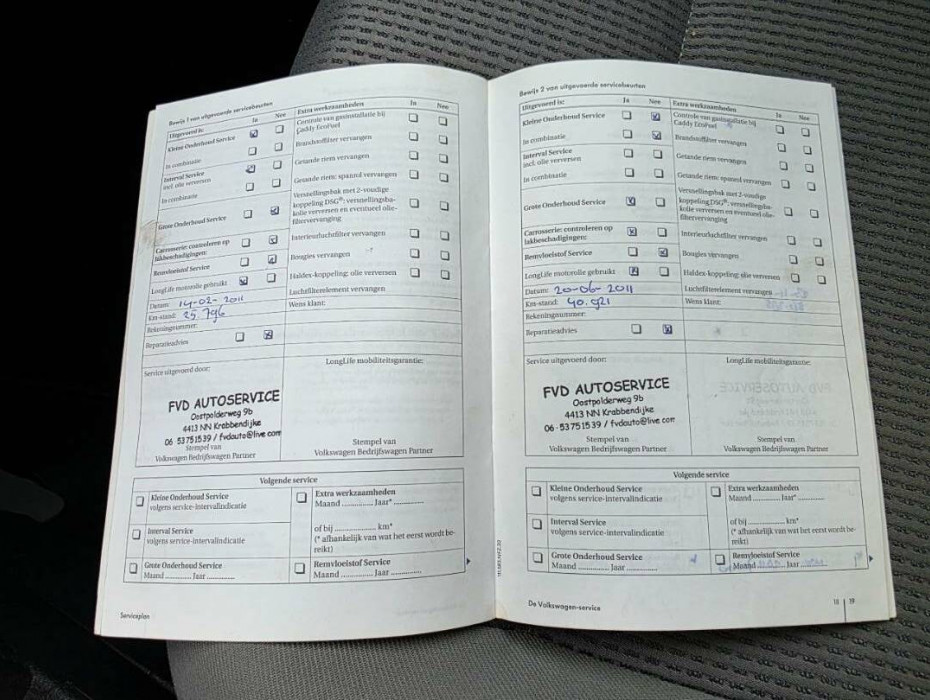 Bewijs 1 van uitgevoerde servicebeurten
Uitgevoerd is: Ja Nee Extra werkzaamheden Ja Nee
Kleine Onderhoud Service
Controle van gasinstallatie bij
Caddy EcoFuel
In combinatie
Brandstoffilter vervangen
Interval Service
incl. olie verversen
Getande riem vervangen
In combinatie
Getande riem: spanrol vervangen
Versnellingsbak met 2-voudige
koppeling DSG®: versnellingsba-
kolie verversen en eventueel olie-
filtervervanging
Grote Onderhoud Service
Carrosserie: controleren op
lakbeschadigingen:
Interieurluchtfilter vervangen
Remvloeistof Service
Bougies vervangen
LongLife motorolie gebruikt
Haldex-koppeling: olie verversen
Datum: 14-02-2011
Luchtfilterelement vervangen
Km-stand: 25.796
Wens klant:
Rekeningnummer:
Reparatieadvies
Service uitgevoerd door:
LongLife mobiliteitsgarantie:
FVD AUTOSERVICE
Oostpolderweg 9b
4413 NN Krabbendijke
06 53751539 / fvdauto@live.com
Stempel van
Volkswagen Bedrijfswagen Partner
Stempel van
Volkswagen Bedrijfswagen Partner
Volgende service
Kleine Onderhoud Service
volgens service-intervalindicatie
Extra werkzaamheden
Maand .............. Jaar* ..............
Interval Service
volgens service-intervalindicatie
of bij .............. km*
(* afhankelijk van wat het eerst wordt be-
reikt)
Grote Onderhoud Service
Maand ........... Jaar ...........
Remvloeistof Service
Maand .............. Jaar ..............
Serviceplan
Bewijs 2 van uitgevoerde servicebeurten
Uitgevoerd is: Ja Nee Extra werkzaamheden Ja Nee
Kleine Onderhoud Service
Controle van gasinstallatie bij
Caddy EcoFuel
In combinatie
Brandstoffilter vervangen
Interval Service
incl. olie verversen
Getande riem vervangen
In combinatie
Getande riem: spanrol vervangen
Versnellingsbak met 2-voudige
koppeling DSG®: versnellingsba-
kolie verversen en eventueel olie-
filtervervanging
Grote Onderhoud Service
Carrosserie: controleren op
lakbeschadigingen:
Interieurluchtfilter vervangen
Remvloeistof Service
Bougies vervangen
LongLife motorolie gebruikt
Haldex-koppeling: olie verversen
Datum: 20-06-2011
Luchtfilterelement vervangen
Km-stand: 40.921
Wens klant:
Rekeningnummer:
Reparatieadvies
Service uitgevoerd door:
LongLife mobiliteitsgarantie:
FVD AUTOSERVICE
Oostpolderweg 9b
4413 NN Krabbendijke
06-53751539 / fvdauto@live.com
Stempel van
Volkswagen Bedrijfswagen Partner
Stempel van
Volkswagen Bedrijfswagen Partner
Volgende service
Kleine Onderhoud Service
volgens service-intervalindicatie
Extra werkzaamheden
Maand .............. Jaar* ..............
Interval Service
volgens service-intervalindicatie
of bij .............. km*
(* afhankelijk van wat het eerst wordt be-
reikt)
Grote Onderhoud Service
Maand ........... Jaar ...........
Remvloeistof Service
Maand .............. Jaar ..............
De Volkswagen-service
18 19